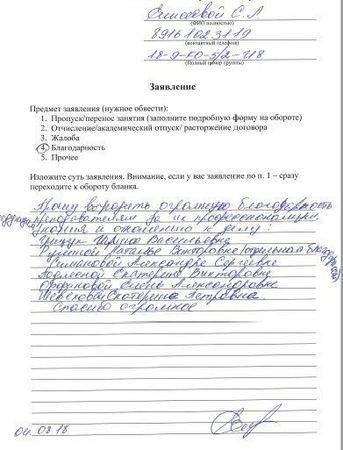 Елисеевой С. А
(ФИО полностью)
89161023119
(контактный телефон)
18-9-КО-3/2-И8
(Полный номер группы)
Заявление
Предмет заявления (нужное обвести):
1. Пропуск/перенос занятия (заполните подробную форму на обороте)
2. Отчисление/академический отпуск/ расторжение договора
3. Жалоба
4. Благодарность
5. Прочее
Изложите суть заявления. Внимание, если у вас заявление по п. 1 – сразу
переходите к обороту бланка.
Хочу выразить огромную благодарность
преподавателям за их профессионализм
знания и отношение к делу:
Ирина Васильевна
Наталье Викторовне
Александре Сергеевне
Екатерина Викторовне
Елене Александровне
Екатерина Петровна
Спасибо огромное
04.08.18